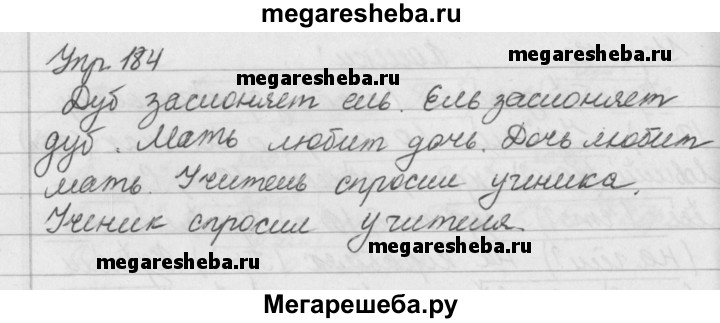 megaresheba.ru
Упр 184
megaresheba.ru
Дуб заслоняет ель. Ель заслоняет
megaresheba.ru
дуб. Мать любит дочь. Дочь любит
мать. Учитель спросил ученика.
Ученик спросил учителя
megaresheba.ru
megaresheba.ru
Мегарешеба.ру